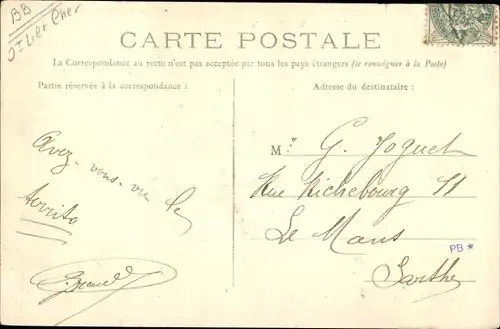 BB
CARTE POSTALE
La Correspondance au recto n'est pas acceptée par tous les pays étrangers (se renseigner à la Poste)
Partie réservée à la correspondance :
Avez-vous-vu le
Adresse du destinataire :
M. G. Joguet
Rue Richebourg 11
Le Mans
Sarthe
PB *